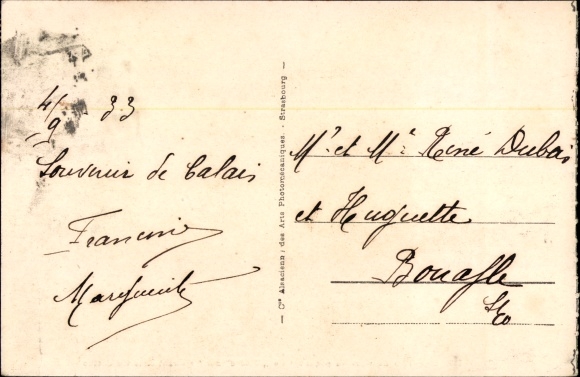 4/9 33
Souvenir de Calais
Francine
Marguerite
Cie Alsacienne des Arts Photomécaniques. - Strasbourg
Mr et Me René Dubois
et Huguette
Bouafle
S/O